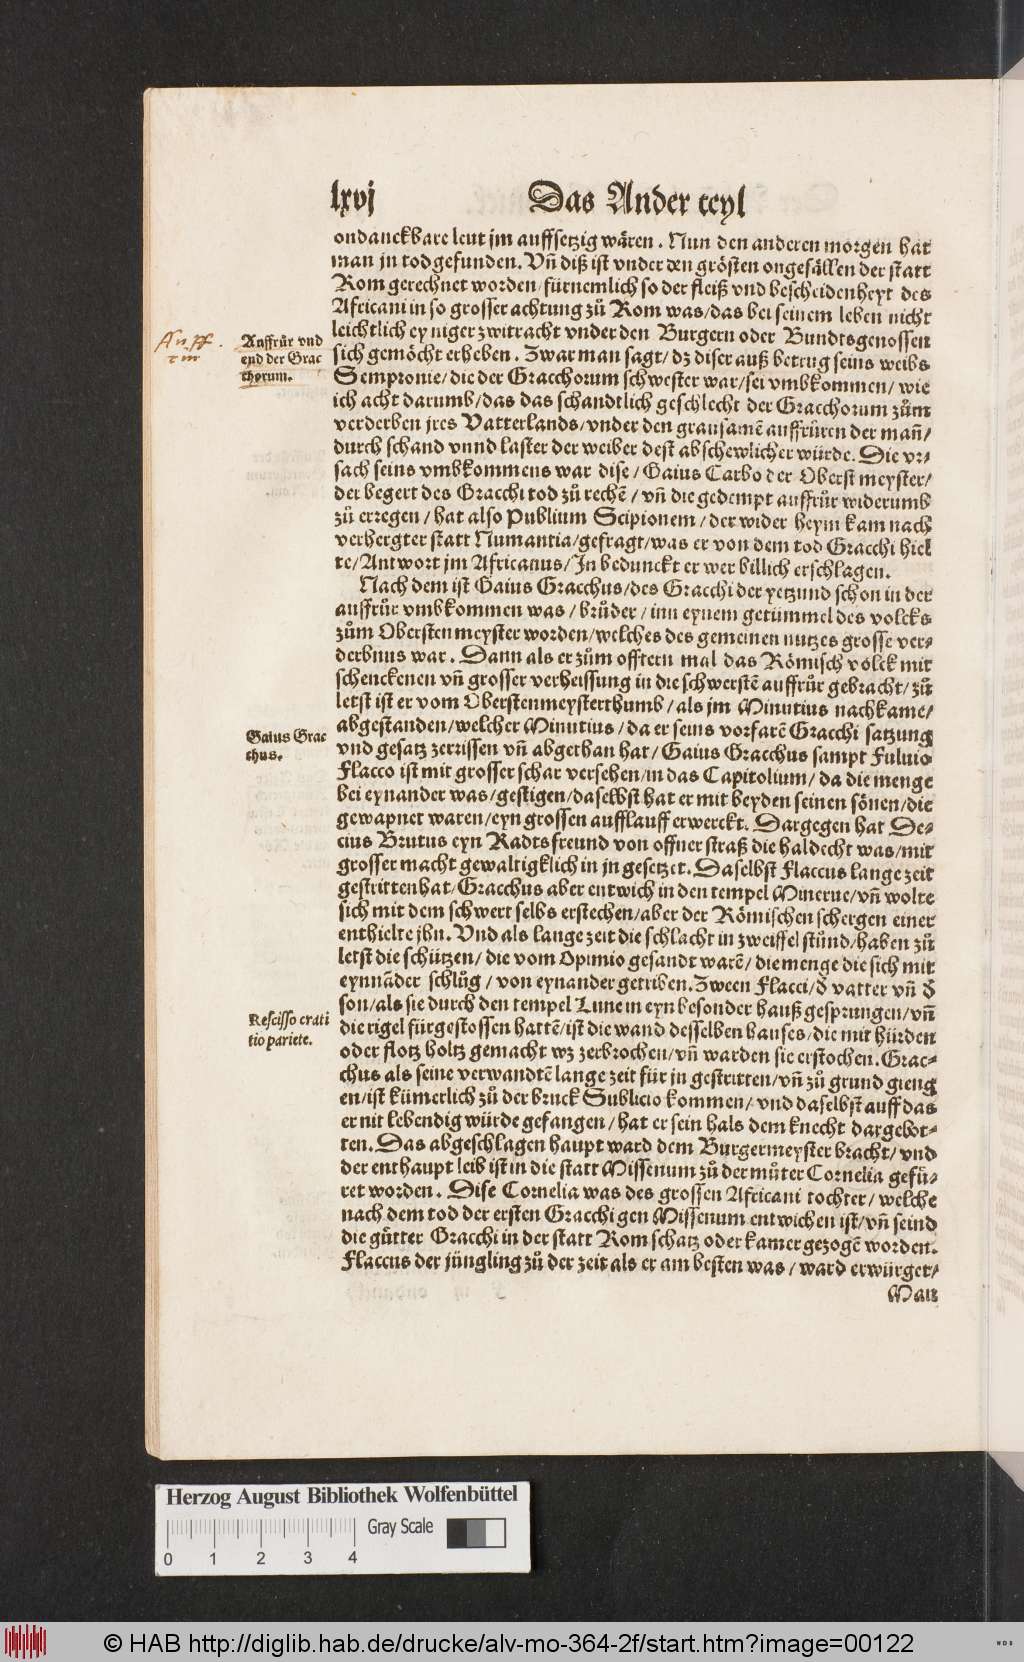 lxvj Das Ander teyl
ondanckbare leut jm auffsetzig wären. Nun den anderen morgen hat
man jn tod gefunden. Vñ diß ist vnder den grösten ongefällen der statt
Rom gerechnet worden / fürnemlich so der fleiß vnd bescheidenheyt des
Africani in so grosser achtung zů Rom was / das bei seinem leben nicht
leichtlich eyniger zwitracht vnder den Burgern oder Bundtsgenossen
sich gemöcht erheben. Zwar man sagt / dz diser auß betrug seins weibs
Sempronie / die der Gracchorum schwester war / sei vmbkommen / wie
ich acht darumb / das das schandtlich geschlecht der Gracchorum zům
verderben jres Vatterlands / vnder den grausamē auffrůren der mañ /
durch schand vnnd laster der weiber dest abschewlicher würde. Die vr-
sach seins vmbkommens war dise / Gaius Carbo der Oberst meyster /
der begert des Gracchi tod zů rechē / vñ die gedempt auffrůr widerumb
zů erregen / hat also Publium Scipionem / der wider heym kam nach
verhergter statt Numantia / gefragt / was er von dem tod Gracchi hiel
te / Antwort jm Africanus / In bedunckt er wer billich erschlagen.
Nach dem ist Gaius Gracchus / des Gracchi der yetzund schon in der
auffrůr vmbkommen was / brůder / inn eynem getümmel des volcks
zům Obersten meyster worden / welches des gemeinen nutzes grosse ver-
derbnus war. Dann als er zům offtern mal das Römisch volck mit
schenckenen vñ grosser verheissung in die schwerstē auffrůr gebracht / zů
letst ist er vom Oberstenmeysterthumb / als jm Minutius nachkame /
abgestanden / welcher Minutius / da er seins vorfarē Gracchi satzung
vnd gesatz zerrissen vñ abgethan hat / Gaius Gracchus sampt Fuluio
Flacco ist mit grosser schar versehen / in das Capitolium / da die menge
bei eynander was / gestigen / daselbst hat er mit beyden seinen sönen / die
gewapnet waren / eyn grossen aufflauff erweckt. Dargegen hat De-
cius Brutus eyn Radtsfreund von offner straß die haldecht was / mit
grosser macht gewaltigklich in jn gesetzet. Daselbst Flaccus lange zeit
gestritten hat / Gracchus aber entwich in den tempel Minerue / vñ wolte
sich mit dem schwert selbs erstechen / aber der Römischen schergen einer
enthielte jhn. Vnd als lange zeit die schlacht in zweiffel stůnd / haben zů
letst die schützen / die vom Opimio gesandt warē / die menge die sich mit
eynnāder schlůg / von eynander getriben. Zween Flacci / d̄ vatter vñ d̄
son / als sie durch den tempel Lune in eyn besonder hauß gesprungen / vñ
die rigel fürgestossen hattē / ist die wand desselben hauses / die mit hürden
oder flotz holtz gemacht wz zerbrochen / vñ warden sie erstochen. Grac-
chus als seine verwandtē lange zeit für jn gestritten / vñ zů grund gieng
en / ist kümerlich zů der bruck Sublicio kommen / vnd daselbst auff das
er nit lebendig würde gefangen / hat er sein hals dem knecht dargebot-
ten. Das abgeschlagen haupt ward dem Burgermeyster bracht / vnd
der enthaupt leib ist in die statt Missenum zů der můter Cornelia gefü-
ret worden. Dise Cornelia was des grossen Africani tochter / welche
nach dem tod der ersten Gracchi gen Missenum entwichen ist / vñ seind
die gütter Gracchi in der statt Rom schatz oder kamer gezogē worden.
Flaccus der jüngling zů der zeit als er am besten was / ward erwürget /
Man
Auffrůr vnd
end der Grac
chorum.
Gaius Grac
chus.
Rescisso crati
tio pariete.
Herzog August Bibliothek Wolfenbüttel
Gray Scale
0 1 2 3 4
© HAB http://diglib.hab.de/drucke/alv-mo-364-2f/start.htm?image=00122